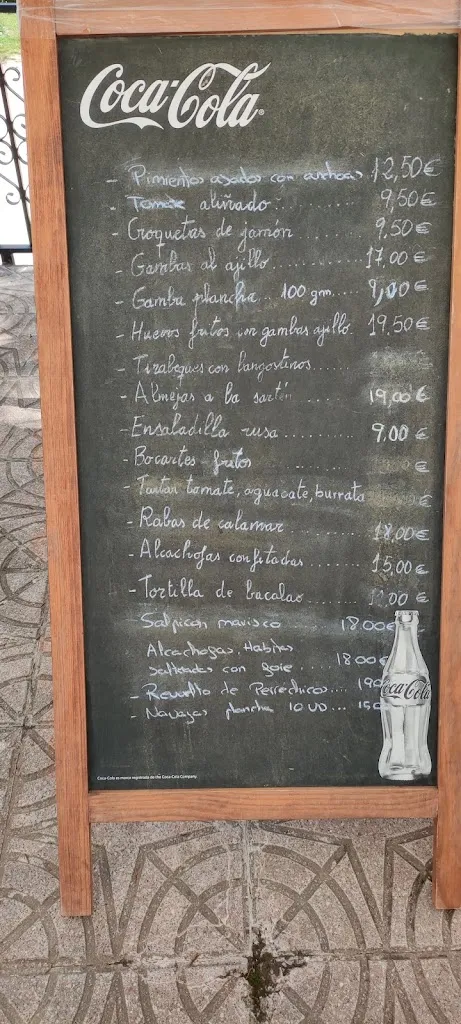 Coca-Cola®
- Pimientos asados con anchoas 12,50€
- Tomate aliñado......... 9,50€
- Croquetas de jamón....... 9,50€
- Gambas al ajillo............ 17,00€
- Gamba plancha... 100 gm..... 9,00€
- Huevos fritos con gambas ajillo. 19,50€
- Tirabeques con langostinos......
- Almejas a la sartén ...... 19,00 €
- Ensaladilla rusa........... 9.00 €
- Bocartes fritos ........ €
- Tartar tomate, aguacate, burrata €
- Rabas de calamar ......... 18,00€
- Alcachofas confitadas ....... 15,00€
- Tortilla de bacalao........ 00€
Salpicon marisco 18.00€
Alcachogas Habitas
salteadas con foie .... 18 00€
- Revuelto de Perrechicos... 190
- Navajas plancha 10 UD... 150
Coca-Cola
Coca-Cola es marca registrada de the Coca-Cola Company.